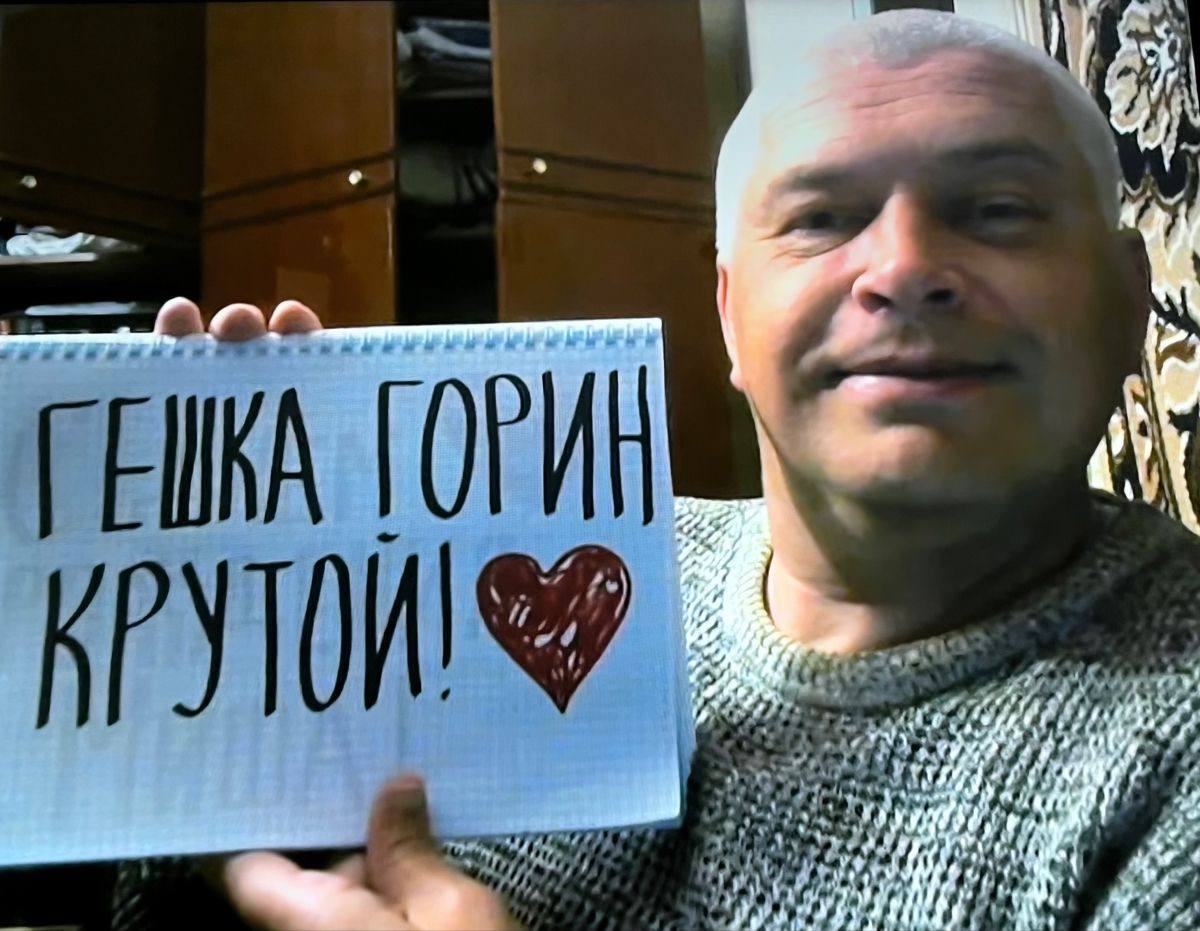 ГЕШКА ГОРИН
КРУТОЙ!